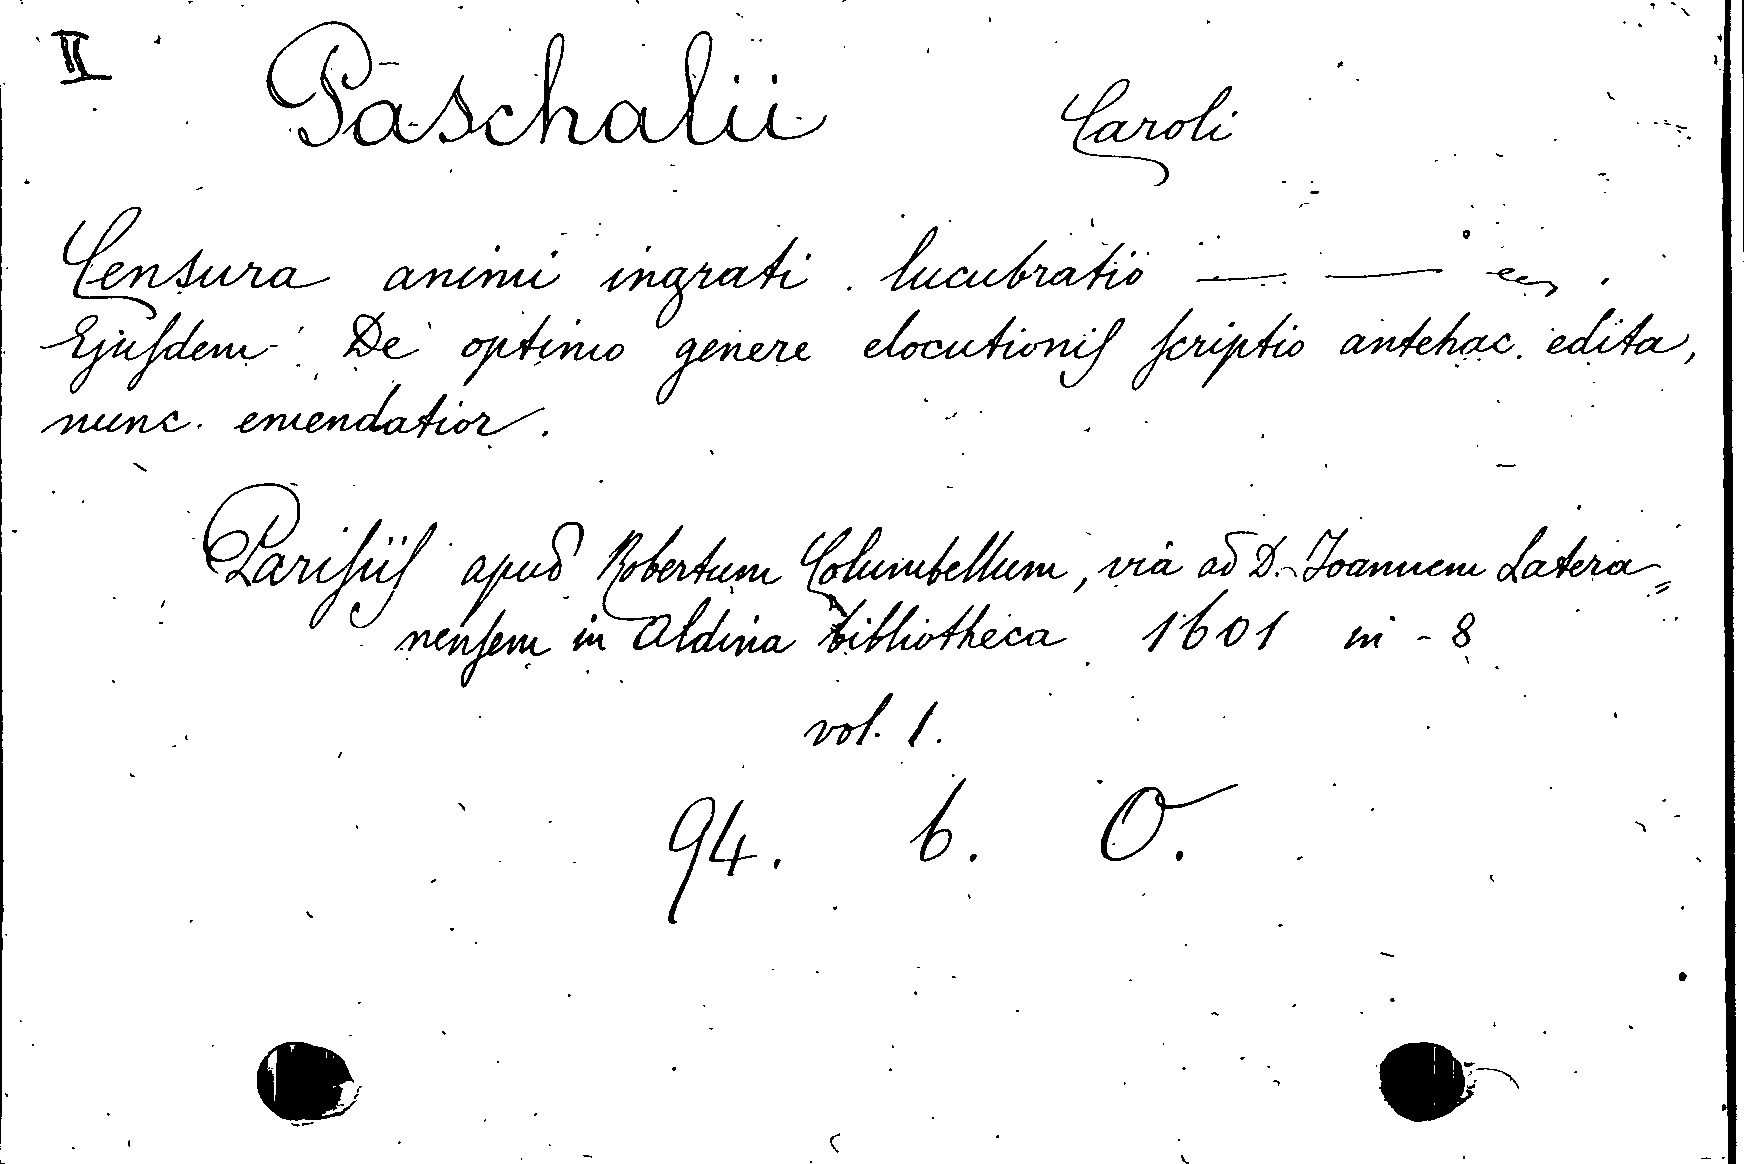 II Paschalii Caroli
Censura animi ingrati. lucubratio — —
Ejuſdem De optimo genere elocutioniſ ſcriptio antehac edita,
nunc emendatior.
Pariſiiſ apud Robertum Columbellum, via ad D. Joannem Latera=
nenſem in Aldina bibliotheca 1601 in - 8
vol. 1.
94. b. O.